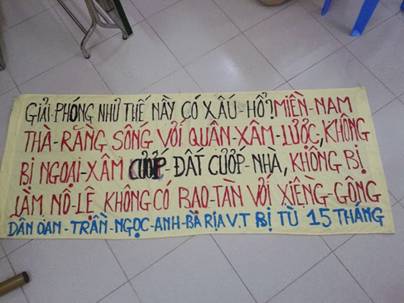 GIẢI-PHÓNG NHƯ THẾ NẦY CÓ XẤU-HỔ?MIỀN-NAM
THÀ-RẰNG SÔNG VỚI QUÂN-XÂM-LƯỢC, KHÔNG
BỊ NGOẠI-XÂM CƯỚP ĐẤT CƯỚP-NHÀ, KHÔNG BỊ
LÀM NÔ-LỆ KHÔNG CÓ BẠO-TÀN VỚI XIỀNG-GÔNG
DÂN OAN-TRẦN-NGỌC-ANH-BÀ RỊA V.T BỊ TÙ 15 THÁNG